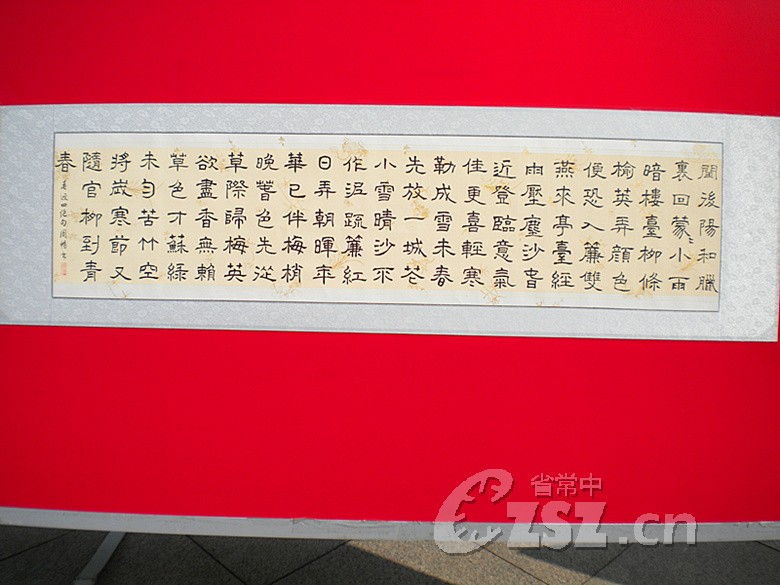 閏後陽和臘
裏回蒙〻小雨
暗樓臺柳條
榆英弄顏色
便恐入簾雙
燕來亭臺經
雨壓塵沙春
近登臨意氣
佳更喜輕寒
勒成雪未春
先放一城花
小雪晴沙不
作泥疏簾紅
日弄朝暉年
華已伴梅梢
晚春色先從
草際歸梅英
欲盡香無賴
草色才蘇綠
未勻苦竹空
將歲寒節又
隨官柳到青
春
春近四絕句
省常中
CZSZ.cn